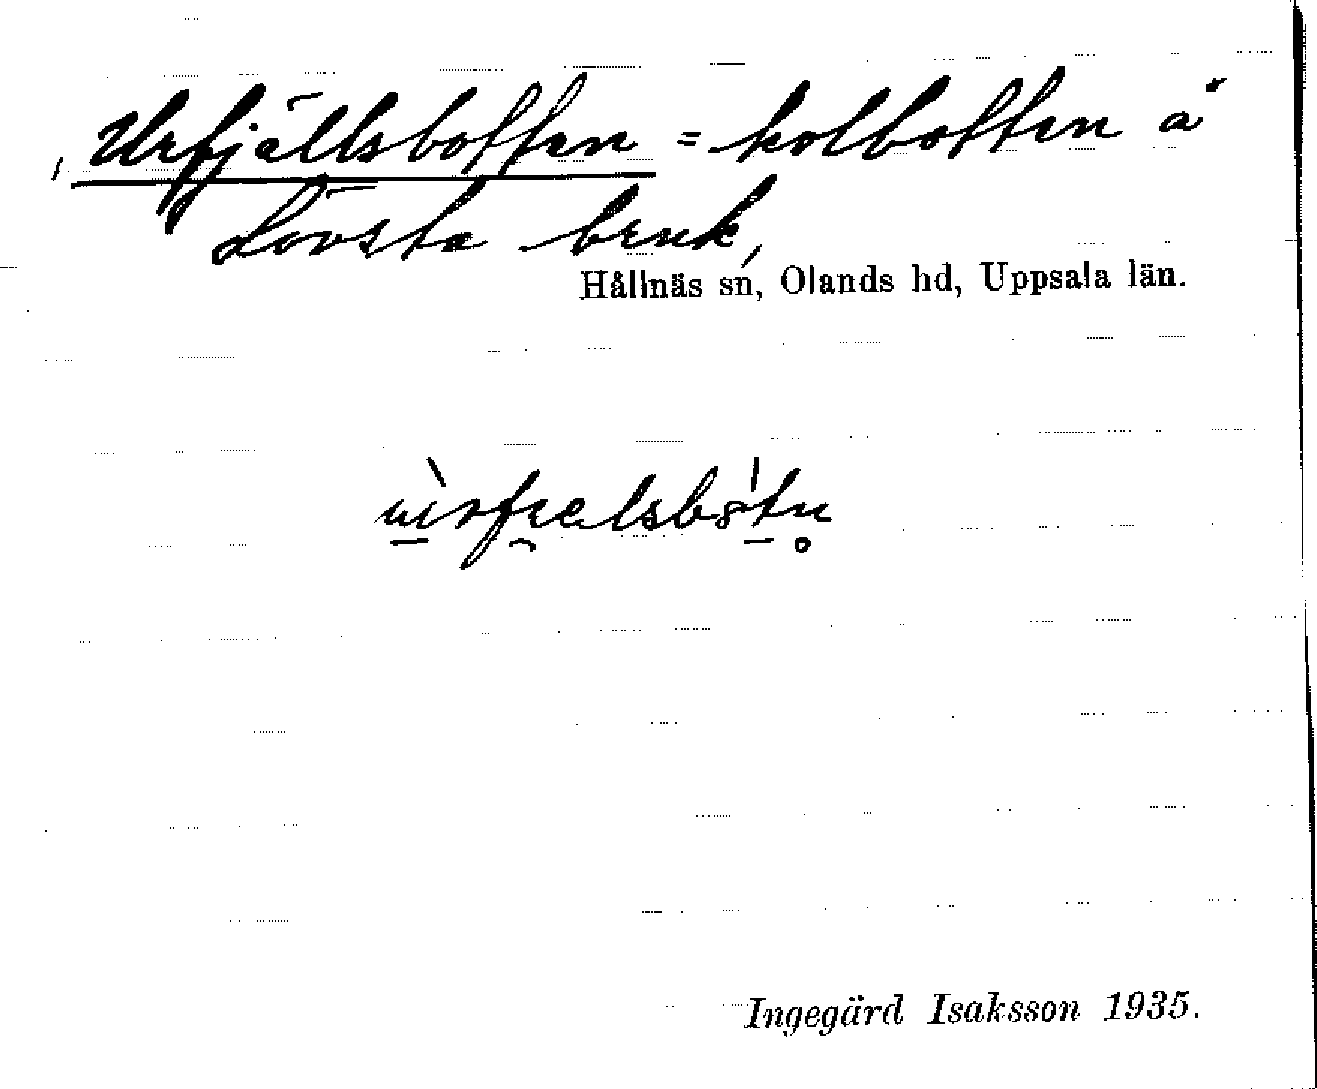 Urfjällsbotten = kolbotten å
Lövsta bruk,
Hållnäs sn, Olands hd, Uppsala län.
Ingegärd Isaksson 1935.